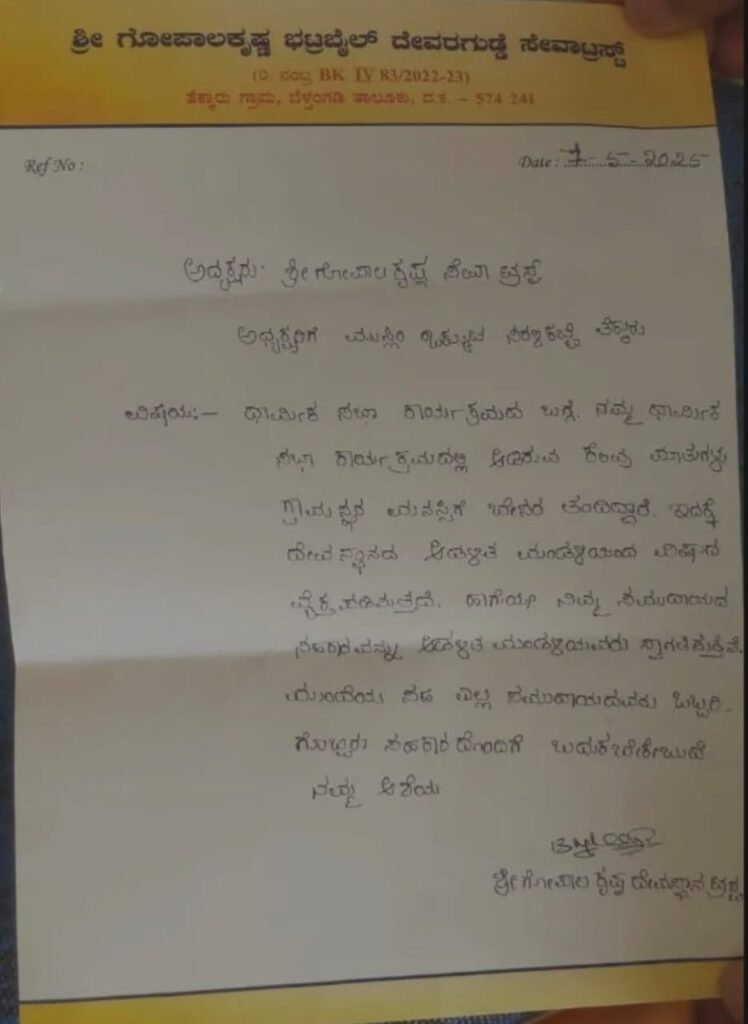 ಶ್ರೀ ಗೋಪಾಲಕೃಷ್ಣ ಭಟ್ರಬೈಲ್ ದೇವರಗುಡ್ಡೆ ಸೇವಾಟ್ರಸ್ಟ್
(ರಿ. ನಂಬ್ರ BK IV 83/2022-23)
ತೆಕ್ಕಾರು ಗ್ರಾಮ, ಬೆಳ್ತಂಗಡಿ ತಾಲೂಕು, ದ.ಕ. – 574 241
Ref No :
Date : 7-5-2025
ಅಧ್ಯಕ್ಷರು: ಶ್ರೀ ಗೋಪಾಲ ಕೃಷ್ಣ ಸೇವಾ ಟ್ರಸ್ಟ್
ಅಧ್ಯಕ್ಷರಿಗೆ ಮುಸ್ಲಿಂ ಒಕ್ಕೂಟ ತೆಕ್ಕಾರು
ವಿಷಯ:– ಧಾರ್ಮಿಕ ಸಭಾ ಕಾರ್ಯಕ್ರಮದ ಬಗ್ಗೆ. ನಮ್ಮ ಧಾರ್ಮಿಕ
ಸಭಾ ಕಾರ್ಯಕ್ರಮದಲ್ಲಿ ಆಡಿರುವ ಕೆಲವು ಮಾತುಗಳು
ಗ್ರಾಮಸ್ಥರ ಮನಸ್ಸಿಗೆ ಬೇಸರ ತಂದಿದ್ದಾರೆ. ಇದಕ್ಕೆ
ದೇವಸ್ಥಾನದ ಆಡಳಿತ ಮಂಡಳಿಯಿಂದ ವಿಷಾದ
ವ್ಯೆಕ್ತ ಪಡಿಸುತ್ತದೆ. ಹಾಗೆಯೇ ನಿಮ್ಮ ಸಮುದಾಯದ
ಸಹಕಾರವನ್ನು ಆಡಳಿತ ಮಂಡಳಿಯವರು ಸ್ವಾಗತಿಸುತ್ತೇವೆ.
ಮುಂದೆಯು ಸಹ ಎಲ್ಲ ಸಮುದಾಯದವರು ಒಬ್ಬರಿ-
ಗೊಬ್ಬರು ಸಹಕಾರದೊಂದಿಗೆ ಬದುಕಬೇಕೆಂಬುದೆ
ನಮ್ಮ ಆಶೆಯ
ಶ್ರೀ ಗೋಪಾಲ ಕೃಷ್ಣ ದೇವಸ್ಥಾನ ಟ್ರಸ್ಟ್